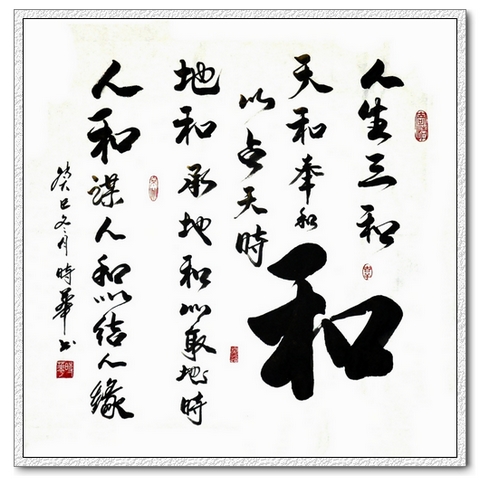 人生三和
和
天和奉和
以占天時
地和承地和以取地時
人和謀人和以結人緣
癸巳冬月時華书